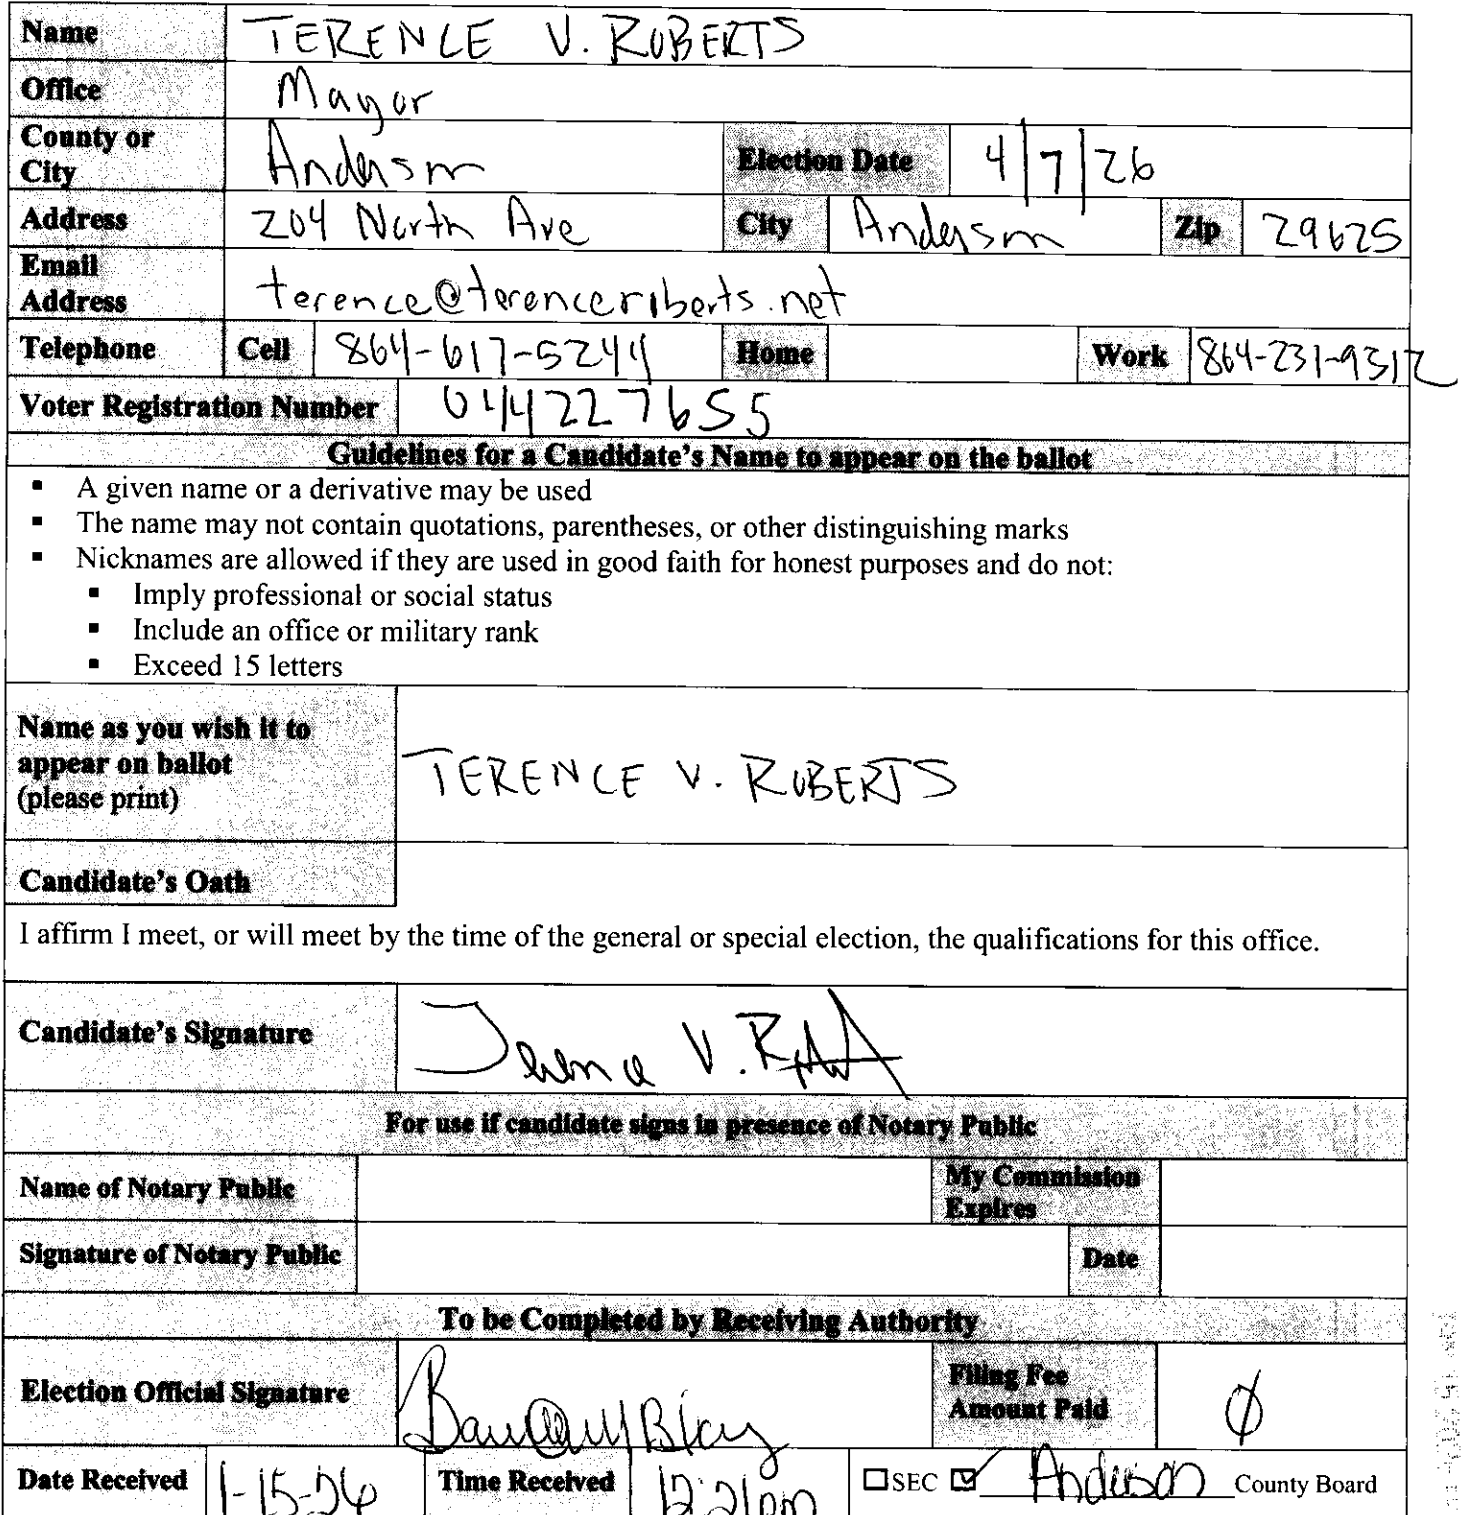 Name TERENCE V. ROBERTS
Office Mayor
County or City Anderson Election Date 4/7/26
Address 204 North Ave City Anderson Zip 29625
Email Address terence@terenceroberts.net
Telephone Cell 864-617-5244 Home Work 864-231-9312
Voter Registration Number 044227655
Guidelines for a Candidate's Name to appear on the ballot
▪ A given name or a derivative may be used
▪ The name may not contain quotations, parentheses, or other distinguishing marks
▪ Nicknames are allowed if they are used in good faith for honest purposes and do not:
▪ Imply professional or social status
▪ Include an office or military rank
▪ Exceed 15 letters
Name as you wish it to
appear on ballot
(please print) TERENCE V. ROBERTS
Candidate's Oath
I affirm I meet, or will meet by the time of the general or special election, the qualifications for this office.
Candidate's Signature Terence V. Roberts
For use if candidate signs in presence of Notary Public
Name of Notary Public My Commission Expires
Signature of Notary Public Date
To be Completed by Receiving Authority
Election Official Signature Filing Fee Amount Paid 0
Date Received 1-15-26 Time Received 12:21pm ☐SEC ☑ Anderson County Board